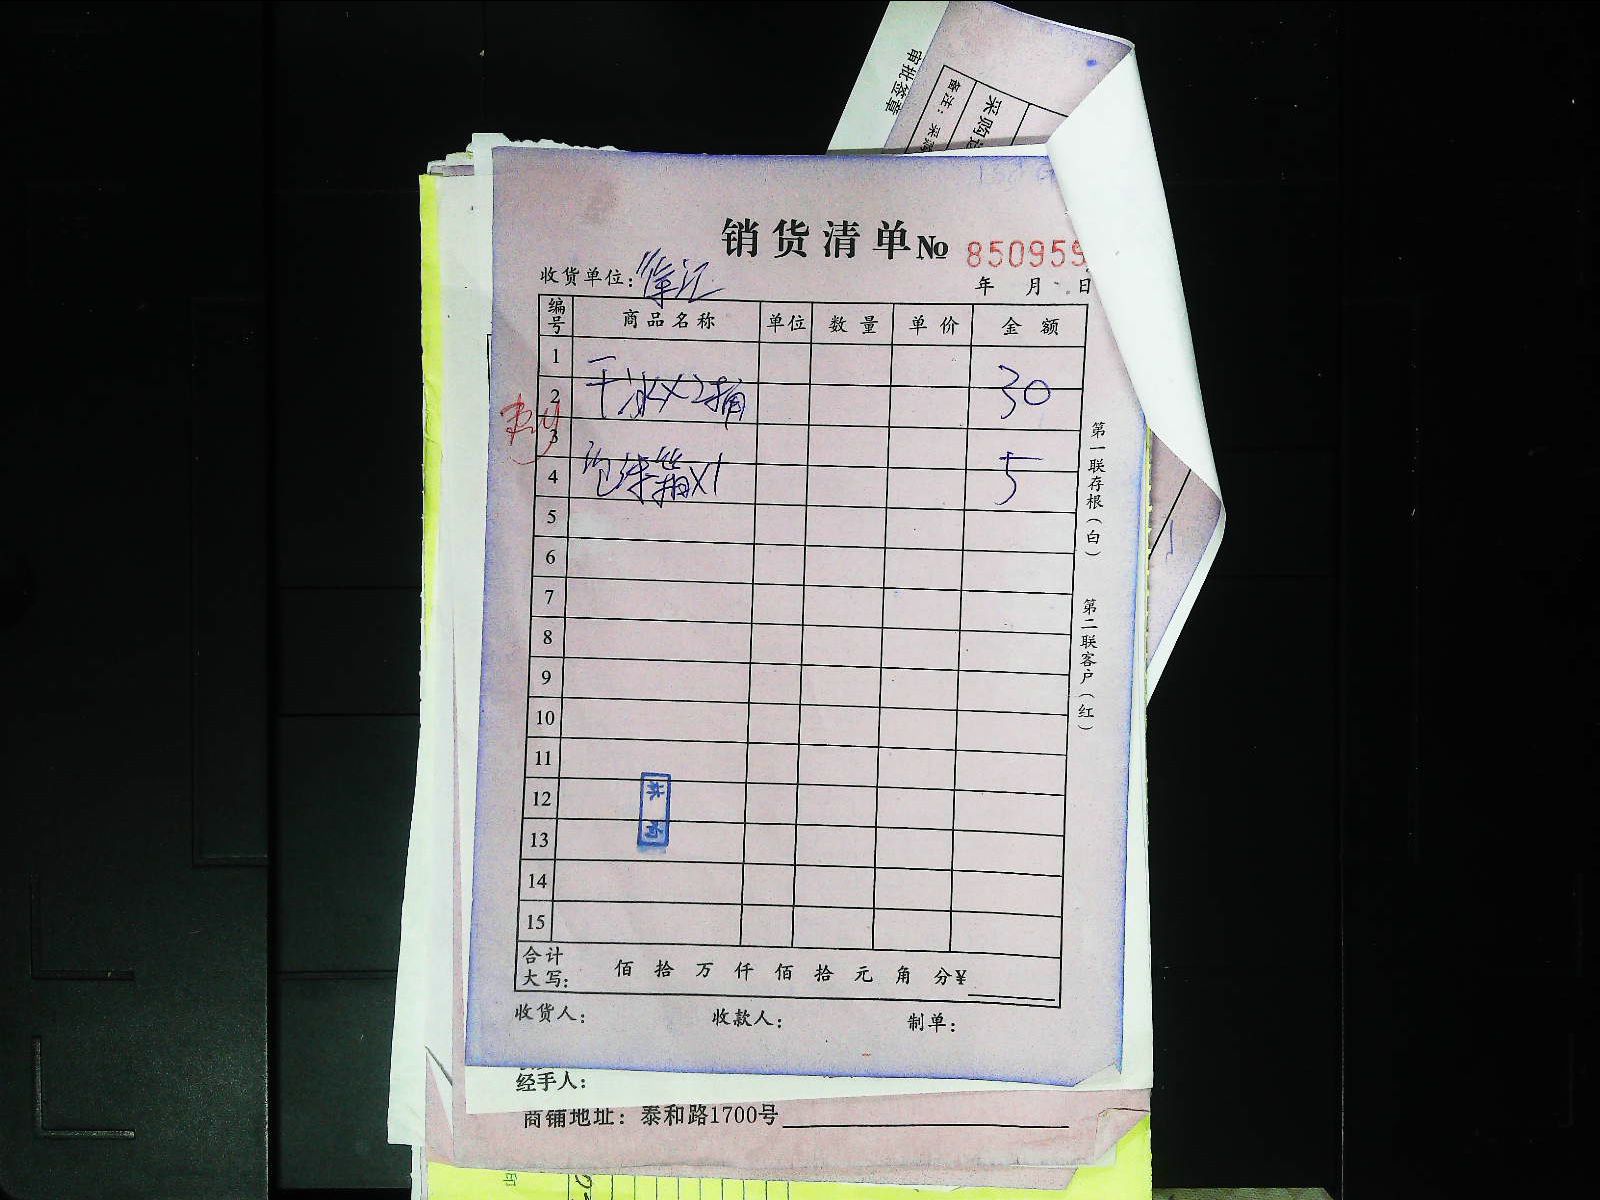 审批签章
采购
备注：采购
销货清单№ 850959
收货单位：徐汇
年 月 日
编号 商品名称 单位 数量 单价 金额
1
2 干冰X2桶 30
3
4 泡沫箱X1 5
5
6
7
8
9
10
11
12
13
14
15
合计大写： 佰 拾 万 仟 佰 拾 元 角 分¥
收货人： 收款人： 制单：
第一联存根（白）
第二联客户（红）
经手人：
商铺地址：泰和路1700号